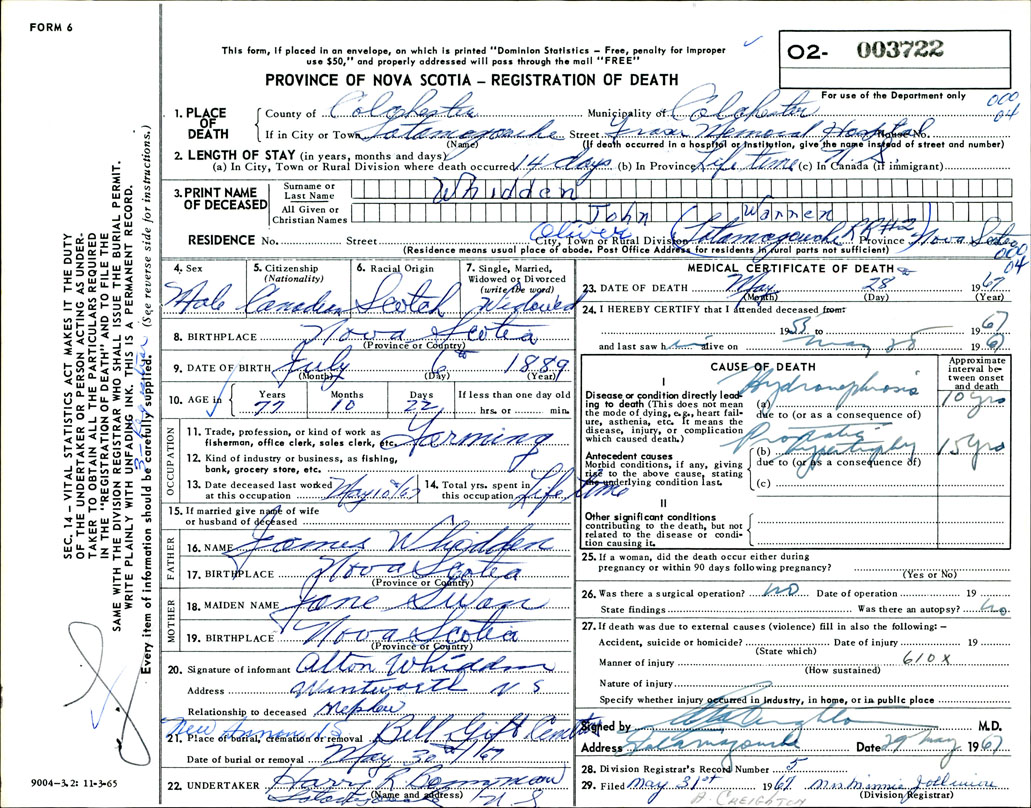 FORM 6
This form, if placed in an envelope, on which is printed "Dominion Statistics – Free, penalty for improper
use $50," and properly addressed will pass through the mail "FREE"
O2- 003722
PROVINCE OF NOVA SCOTIA – REGISTRATION OF DEATH
For use of the Department only
000
04
1. PLACE OF DEATH
County of Colchester Municipality of Colchester
If in City or Town Tatamagouche Street Fraser Memorial Hospital House No.
(Name) (If death occurred in a hospital or institution, give the name instead of street and number)
2. LENGTH OF STAY (in years, months and days)
(a) In City, Town or Rural Division where death occurred 14 days (b) In Province Life time (c) In Canada (if immigrant) N.S.
3. PRINT NAME OF DECEASED
Surname or Last Name Whidden
All Given or Christian Names John Warren
Oliver
RESIDENCE No. Street City, Town or Rural Division Tatamagouche RR#2 Province Nova Scotia
(Residence means usual place of abode. Post Office Address for residents in rural parts not sufficient)
000
04
4. Sex Male
5. Citizenship (Nationality) Canadian
6. Racial Origin Scotch
7. Single, Married, Widowed or Divorced (write the word) Widowed
8. BIRTHPLACE Nova Scotia
(Province or Country)
9. DATE OF BIRTH July 6th 1889
(Month) (Day) (Year)
10. AGE in Years 77 Months 10 Days 22 If less than one day old hrs. or min.
OCCUPATION
11. Trade, profession, or kind of work as fisherman, office clerk, sales clerk, etc. Farming
12. Kind of industry or business, as fishing, bank, grocery store, etc.
13. Date deceased last worked at this occupation May 10/67
14. Total yrs. spent in this occupation Life time
15. If married give name of wife or husband of deceased
FATHER
16. NAME James Whidden
17. BIRTHPLACE Nova Scotia
(Province or Country)
MOTHER
18. MAIDEN NAME Jane Swan
19. BIRTHPLACE Nova Scotia
(Province or Country)
20. Signature of informant Alton Whidden
Address Wentworth N S
Relationship to deceased Nephew
New Annan N.S.
21. Place of burial, cremation or removal Bell Gift Cemetery
Date of burial or removal May 30/67
22. UNDERTAKER Harry R
(Name and address) N S
MEDICAL CERTIFICATE OF DEATH
23. DATE OF DEATH May 28 1967
(Month) (Day) (Year)
24. I HEREBY CERTIFY that I attended deceased from:
1953 to 1967
and last saw him alive on May 28 1967
CAUSE OF DEATH
Approximate interval between onset and death
I
Disease or condition directly leading to death (This does not mean the mode of dying, e.g., heart failure, asthenia, etc. It means the disease, injury, or complication which caused death.)
(a) Hydronephrosis 10 yrs
due to (or as a consequence of)
Antecedent causes
Morbid conditions, if any, giving rise to the above cause, stating the underlying condition last.
(b) Prostatic hypertrophy 15 yrs
due to (or as a consequence of)
(c)
II
Other significant conditions
contributing to the death, but not related to the disease or condition causing it.
25. If a woman, did the death occur either during pregnancy or within 90 days following pregnancy?
(Yes or No)
26. Was there a surgical operation? no Date of operation 19
State findings Was there an autopsy? no
27. If death was due to external causes (violence) fill in also the following: –
Accident, suicide or homicide? Date of injury 19
(State which)
Manner of injury 610X
(How sustained)
Nature of injury
Specify whether injury occurred in industry, in home, or in public place
Signed by M.D.
Address Tatamagouche Date 29 May 1967
28. Division Registrar's Record Number 5
29. Filed May 31st 1967 Mrs Minnie
(Division Registrar)
A. CREIGHTON
SEC. 14 – VITAL STATISTICS ACT MAKES IT THE DUTY
OF THE UNDERTAKER OR PERSON ACTING AS UNDER-
TAKER TO OBTAIN ALL THE PARTICULARS REQUIRED
IN THE "REGISTRATION OF DEATH" AND TO FILE THE
SAME WITH THE DIVISION REGISTRAR WHO SHALL ISSUE THE BURIAL PERMIT.
WRITE PLAINLY WITH UNFADING INK. THIS IS A PERMANENT RECORD.
Every item of information should be carefully supplied. (See reverse side for instructions.)
9004–3.2: 11-3-65